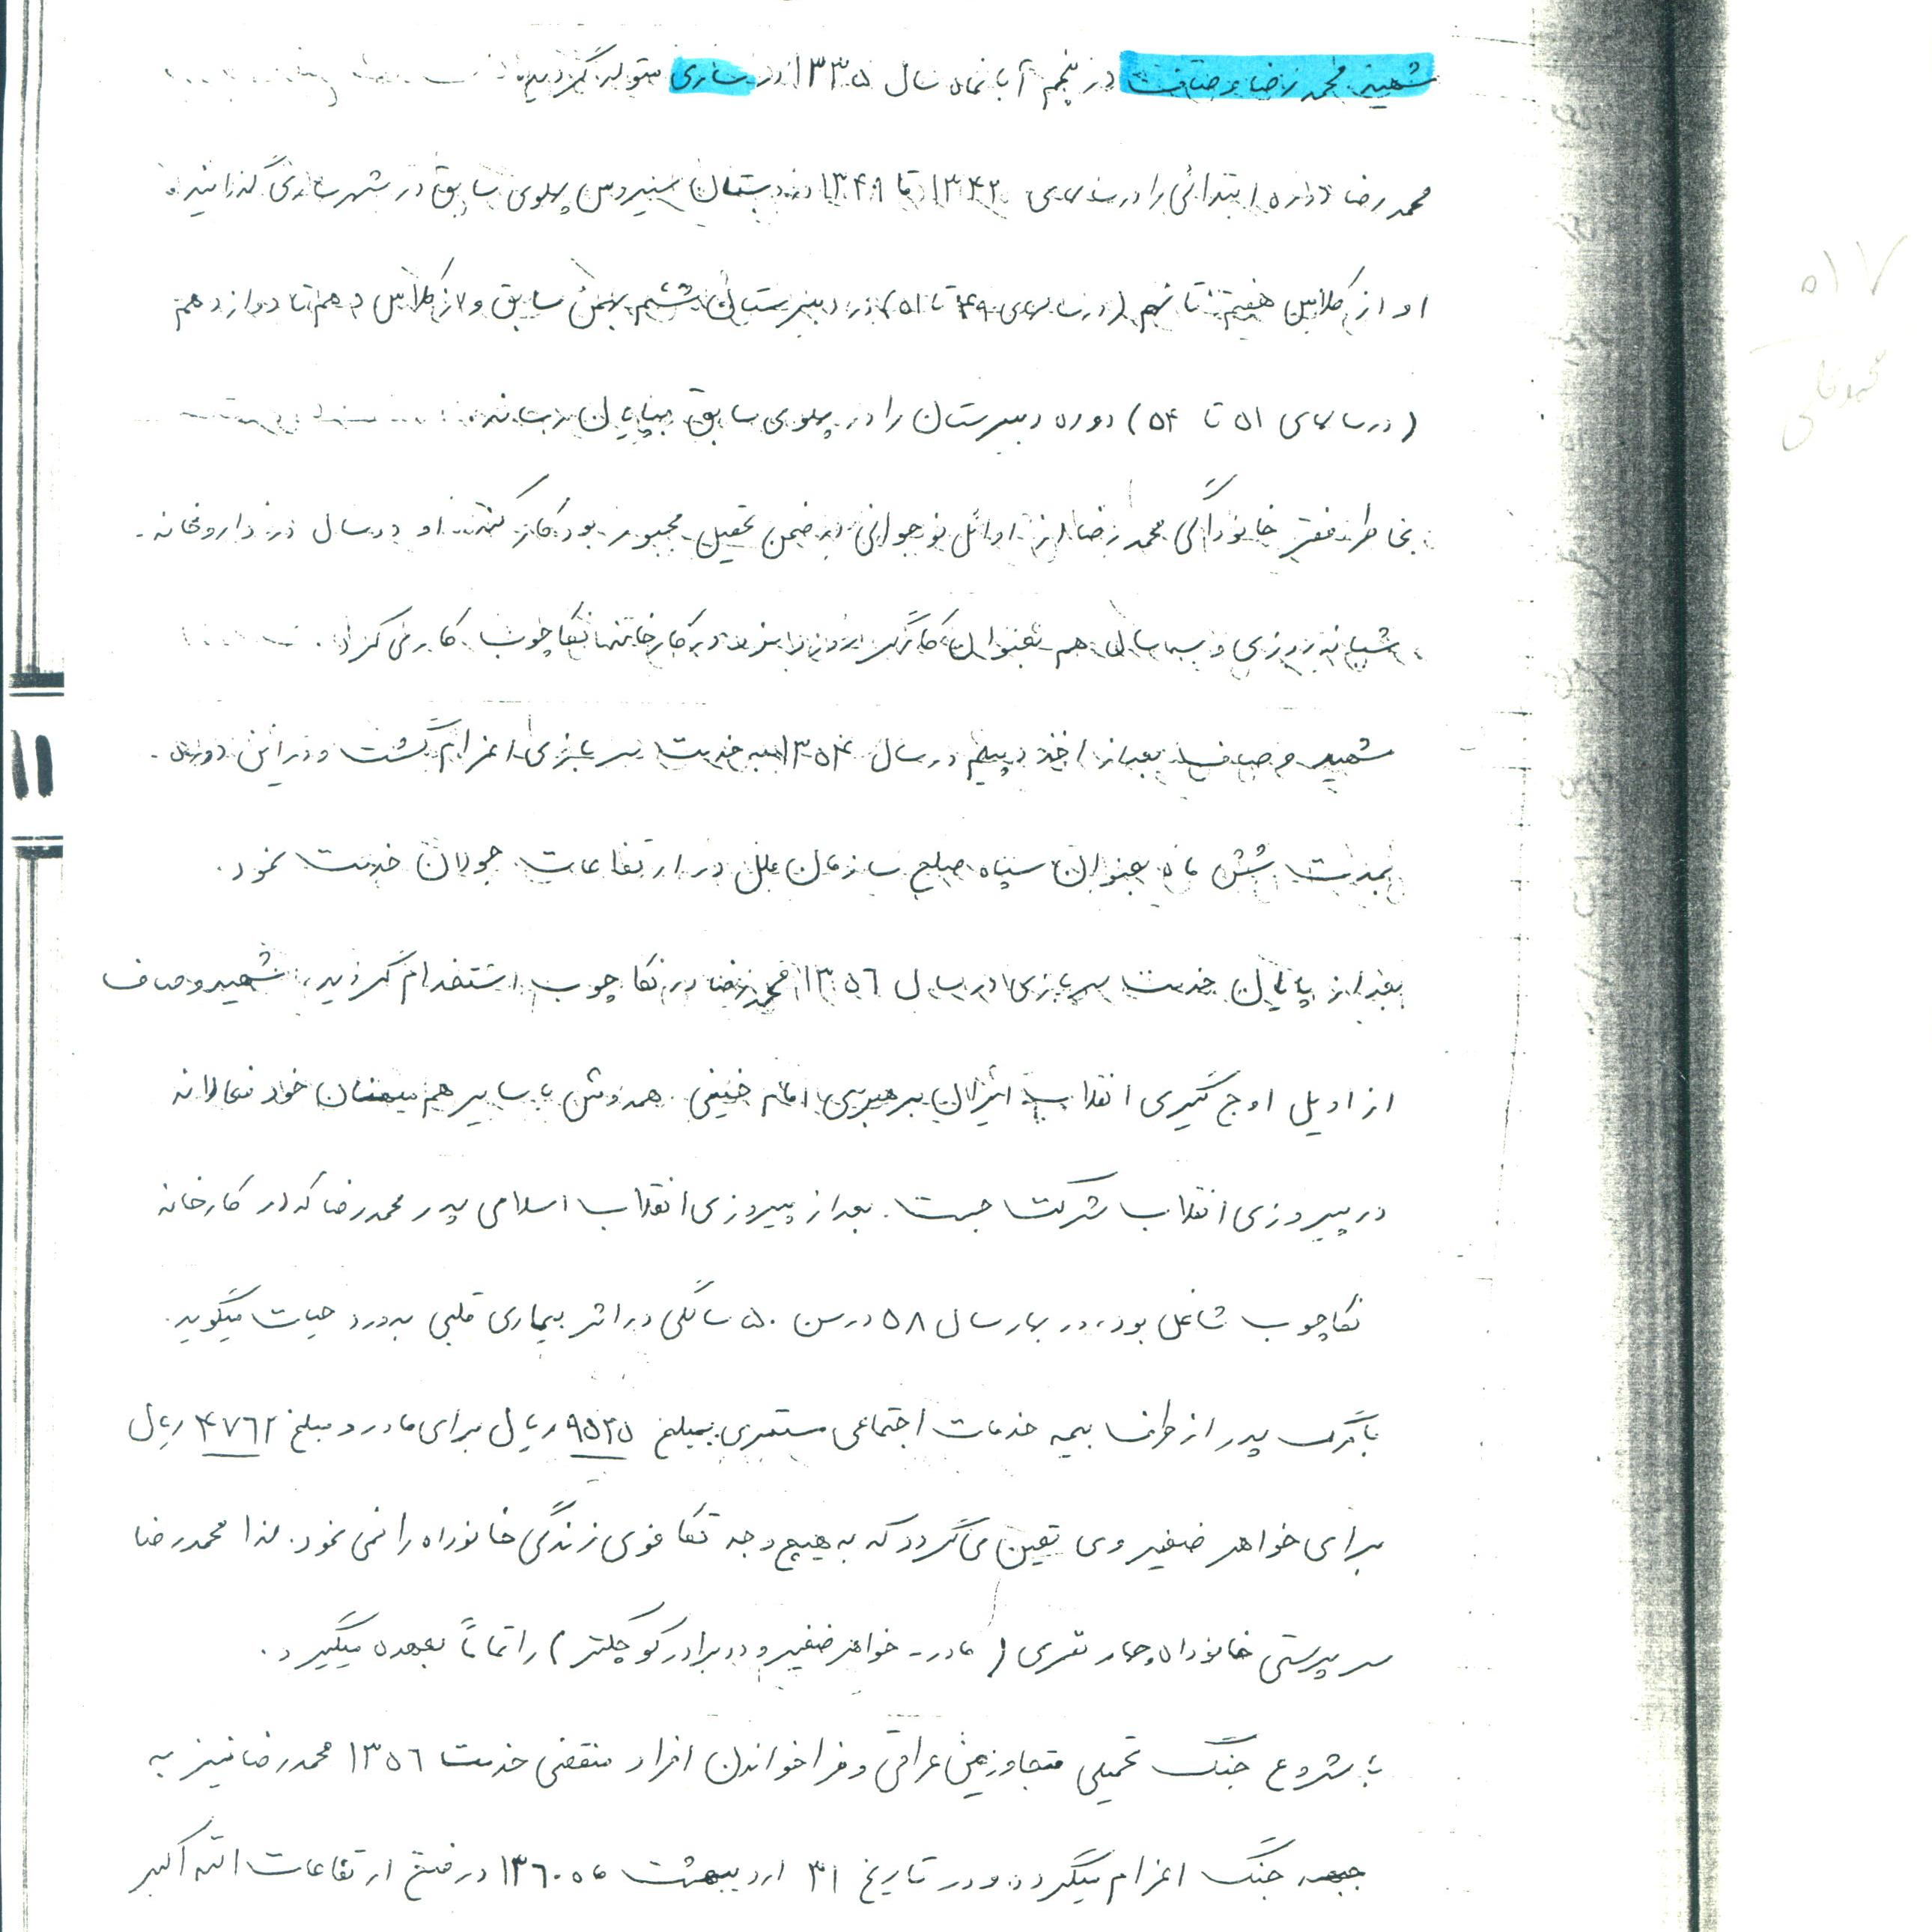 شهید محمد رضا وصاف در پنجم آبانماه سال ۱۳۳۵ در ساری متولد گردید.
محمد رضا دوره ابتدائی را در سالهای ۱۳۴۲ تا ۱۳۴۹ در دبستان سیروس پهلوی سابق در شهر ساری گذرانید.
او از کلاس هفتم تا نهم (در سالهای ۴۹ تا ۵۱) در دبیرستان ششم بهمن سابق و از کلاس دهم تا دوازدهم
(در سالهای ۵۱ تا ۵۴) دوره دبیرستان را در پهلوی سابق بپایان رساند.
بخاطر فقر خانوادگی محمد رضا از اوائل نوجوانی در ضمن تحصیل مجبور بود کار کند. او دو سال در داروخانه
شبانه روزی و سه سال هم بعنوان کارگر روزمزد در کارخانه نکاچوب کار می کرد.
شهید وصاف بعد از اخذ دیپلم در سال ۱۳۵۴ به خدمت سربازی اعزام گشت و در این دوره
بمدت شش ماه بعنوان سپاه صلح سازمان ملل در ارتفاعات جولان خدمت نمود.
بعد از پایان خدمت سربازی در سال ۱۳۵۶ محمد رضا در نکا چوب استخدام گردید، شهید وصاف
از اویل اوج گیری انقلاب ایران برهبری امام خمینی همدوش با سایر هم میهنان خود فعالانه
در پیروزی انقلاب شرکت جست. بعد از پیروزی انقلاب اسلامی پدر محمد رضا که در کارخانه
نکاچوب شاغل بود، در بهار سال ۵۸ در سن ۵۰ سالگی در اثر بیماری قلبی بدورد حیات میگوید.
با مرگ پدر از طرف بیمه خدمات اجتماعی مستمری بمبلغ ۹۵۲۵ ریال برای مادر و مبلغ ۴۷۶۲ ریال
برای خواهر صغیر وی تعین می گردد که به هیچ وجه تکافوی زندگی خانوداه را نمی نمود. لذا محمد رضا
سرپرستی خانوداه چهار نفری (مادر - خواهر صغیر و دو برادر کوچکتر) را تماماً بعهده میگیرد.
با شروع جنگ تحمیلی متجاوزین عراقی و فراخواندن افراد منقضی خدمت ۱۳۵۶ محمد رضا نیز به
جبهه جنگ اعزام میگردد و در تاریخ ۳۱ اردیبهشت ماه ۱۳۶۰ در فتح ارتفاعات الله اکبر
۱۱
۵۱۷